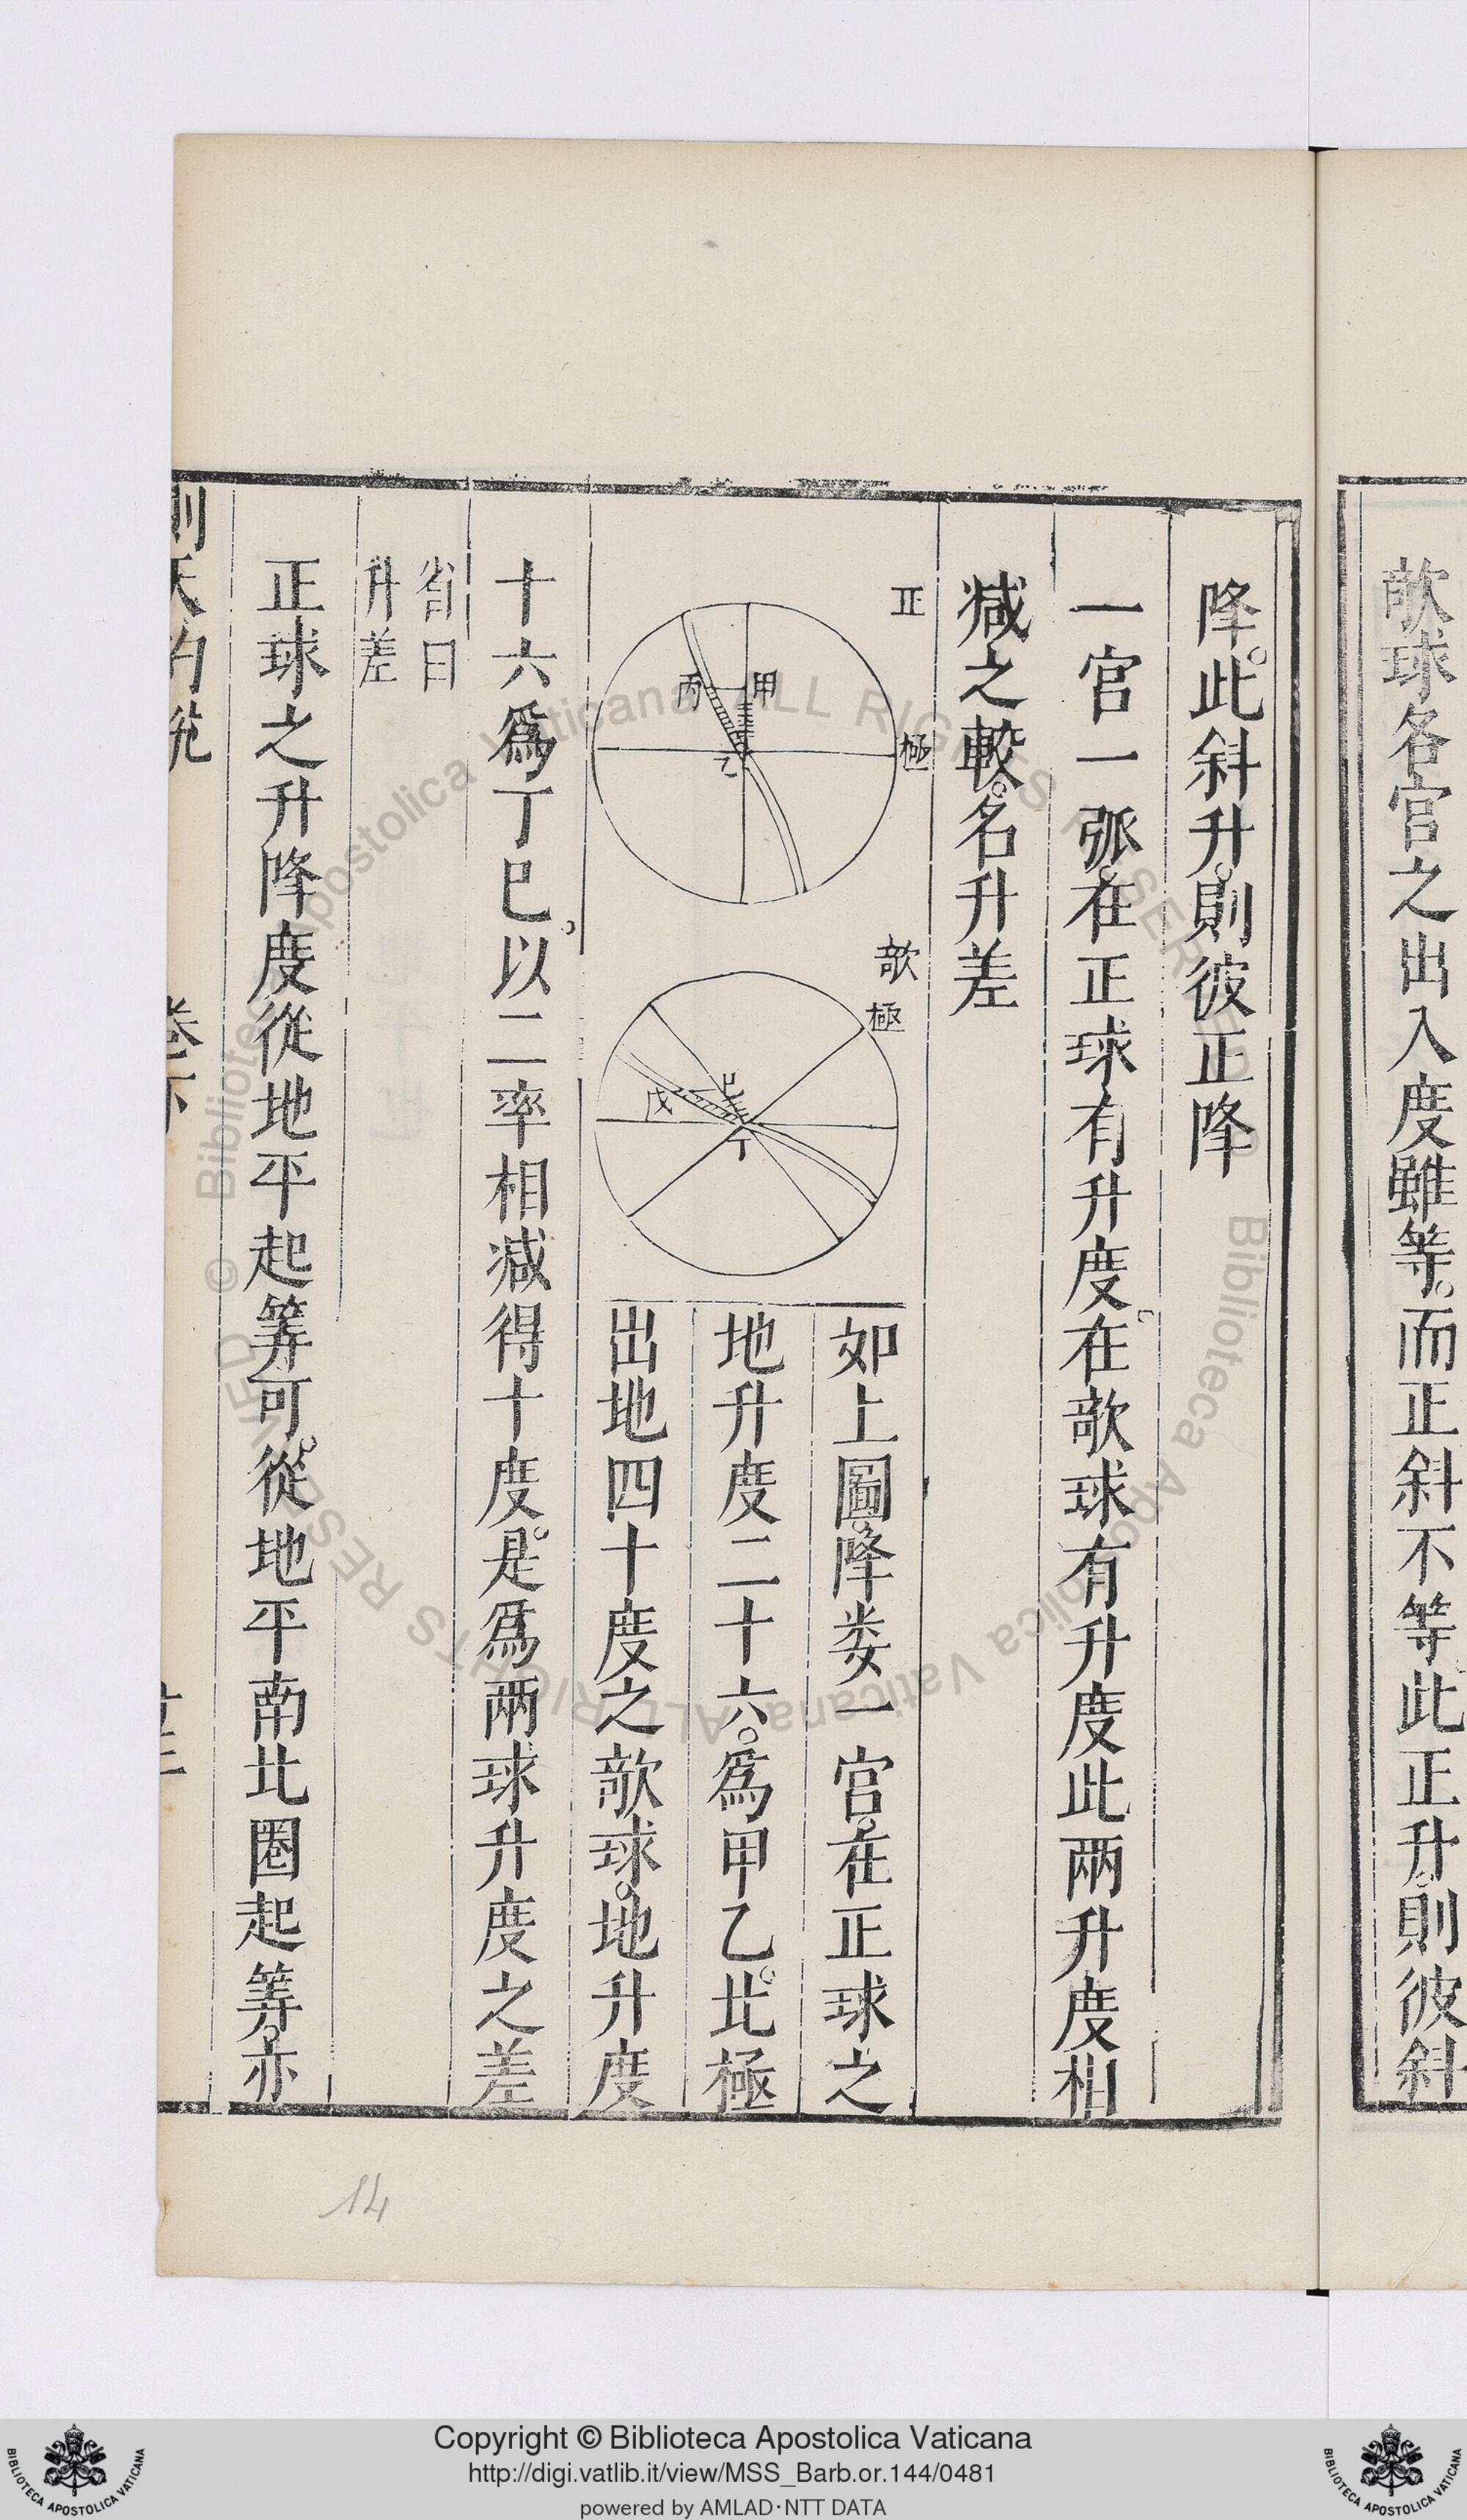 欹球各官之出入度雖等。而正斜不等。此正升。則彼斜
降。此斜升。則彼正降
一官一弧。在正球有升度。在欹球有升度此兩升度相
減之較。名升差
正
極
甲
丙
乙
欹
極
己
戊
丁
如上圖。降婁一宮。在正球之
地升度二十六。為甲乙。北極
出地四十度之欹球。地升度
十六為丁巳。以二率相減得十度。是為兩球升度之差
省日
升差
正球之升降度從地平起筭可。從地平南北圈起筭。亦
則天約說
卷下
十三
14
Copyright © Biblioteca Apostolica Vaticana
http://digi.vatlib.it/view/MSS_Barb.or.144/0481
powered by AMLAD·NTT DATA
BIBLIOTECA APOSTOLICA VATICANA
BIBLIOTECA APOSTOLICA VATICANA